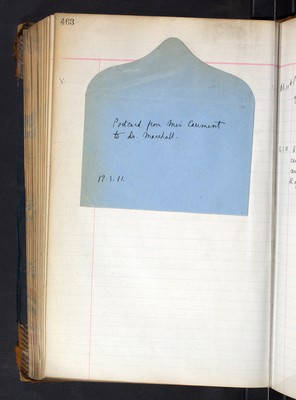 463
Postcard from Miss Carment
to Dr. Marshall.
19.1.11.